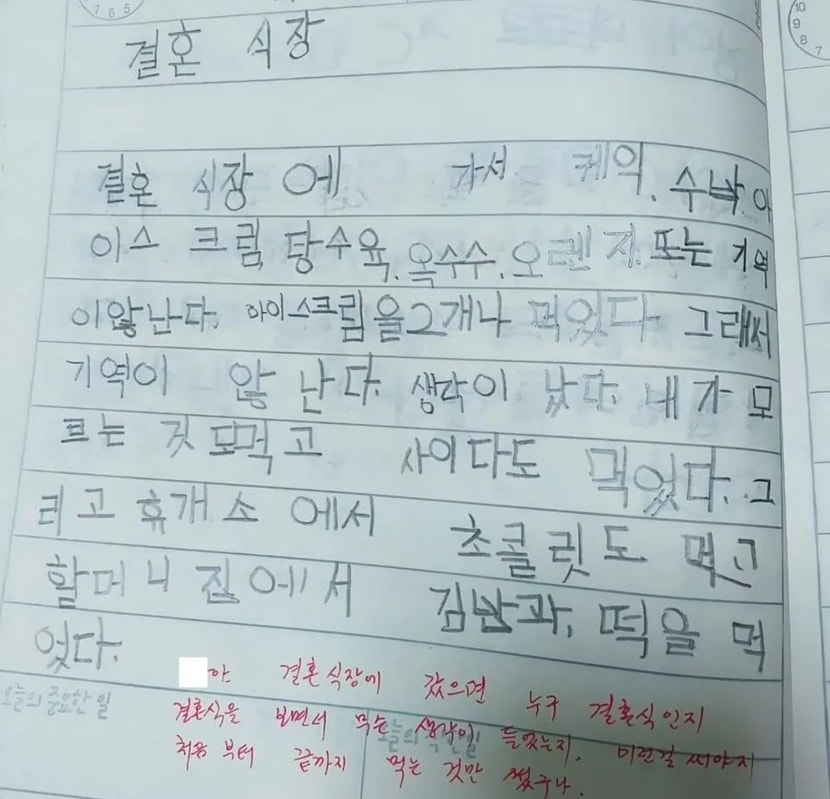 결혼 식장
결혼 식장 에 가서 케익, 수박 아
이스 크림, 탕수육, 옥수수, 오렌 지, 또는 기억
이않난다. 아이스크림을2개나 먹었다. 그래서
기억이 않 난다. 생각이 났다. 내가 모
르는 것 도먹고 사이다도 먹었다. 그
리고 휴개 소 에서 초콜릿도 먹고
할머니 집에서 김밥과, 떡을 먹
었다.
야 결혼식장에 갔으면 누구 결혼식인지
결혼식을 보면서 무슨 생각이 들었는지, 이런걸 써야지
처음 부터 끝까지 먹는 것만 썼구나.
오늘의 중요한 일
오늘의 착한일
7 6 5
10
9
8
7